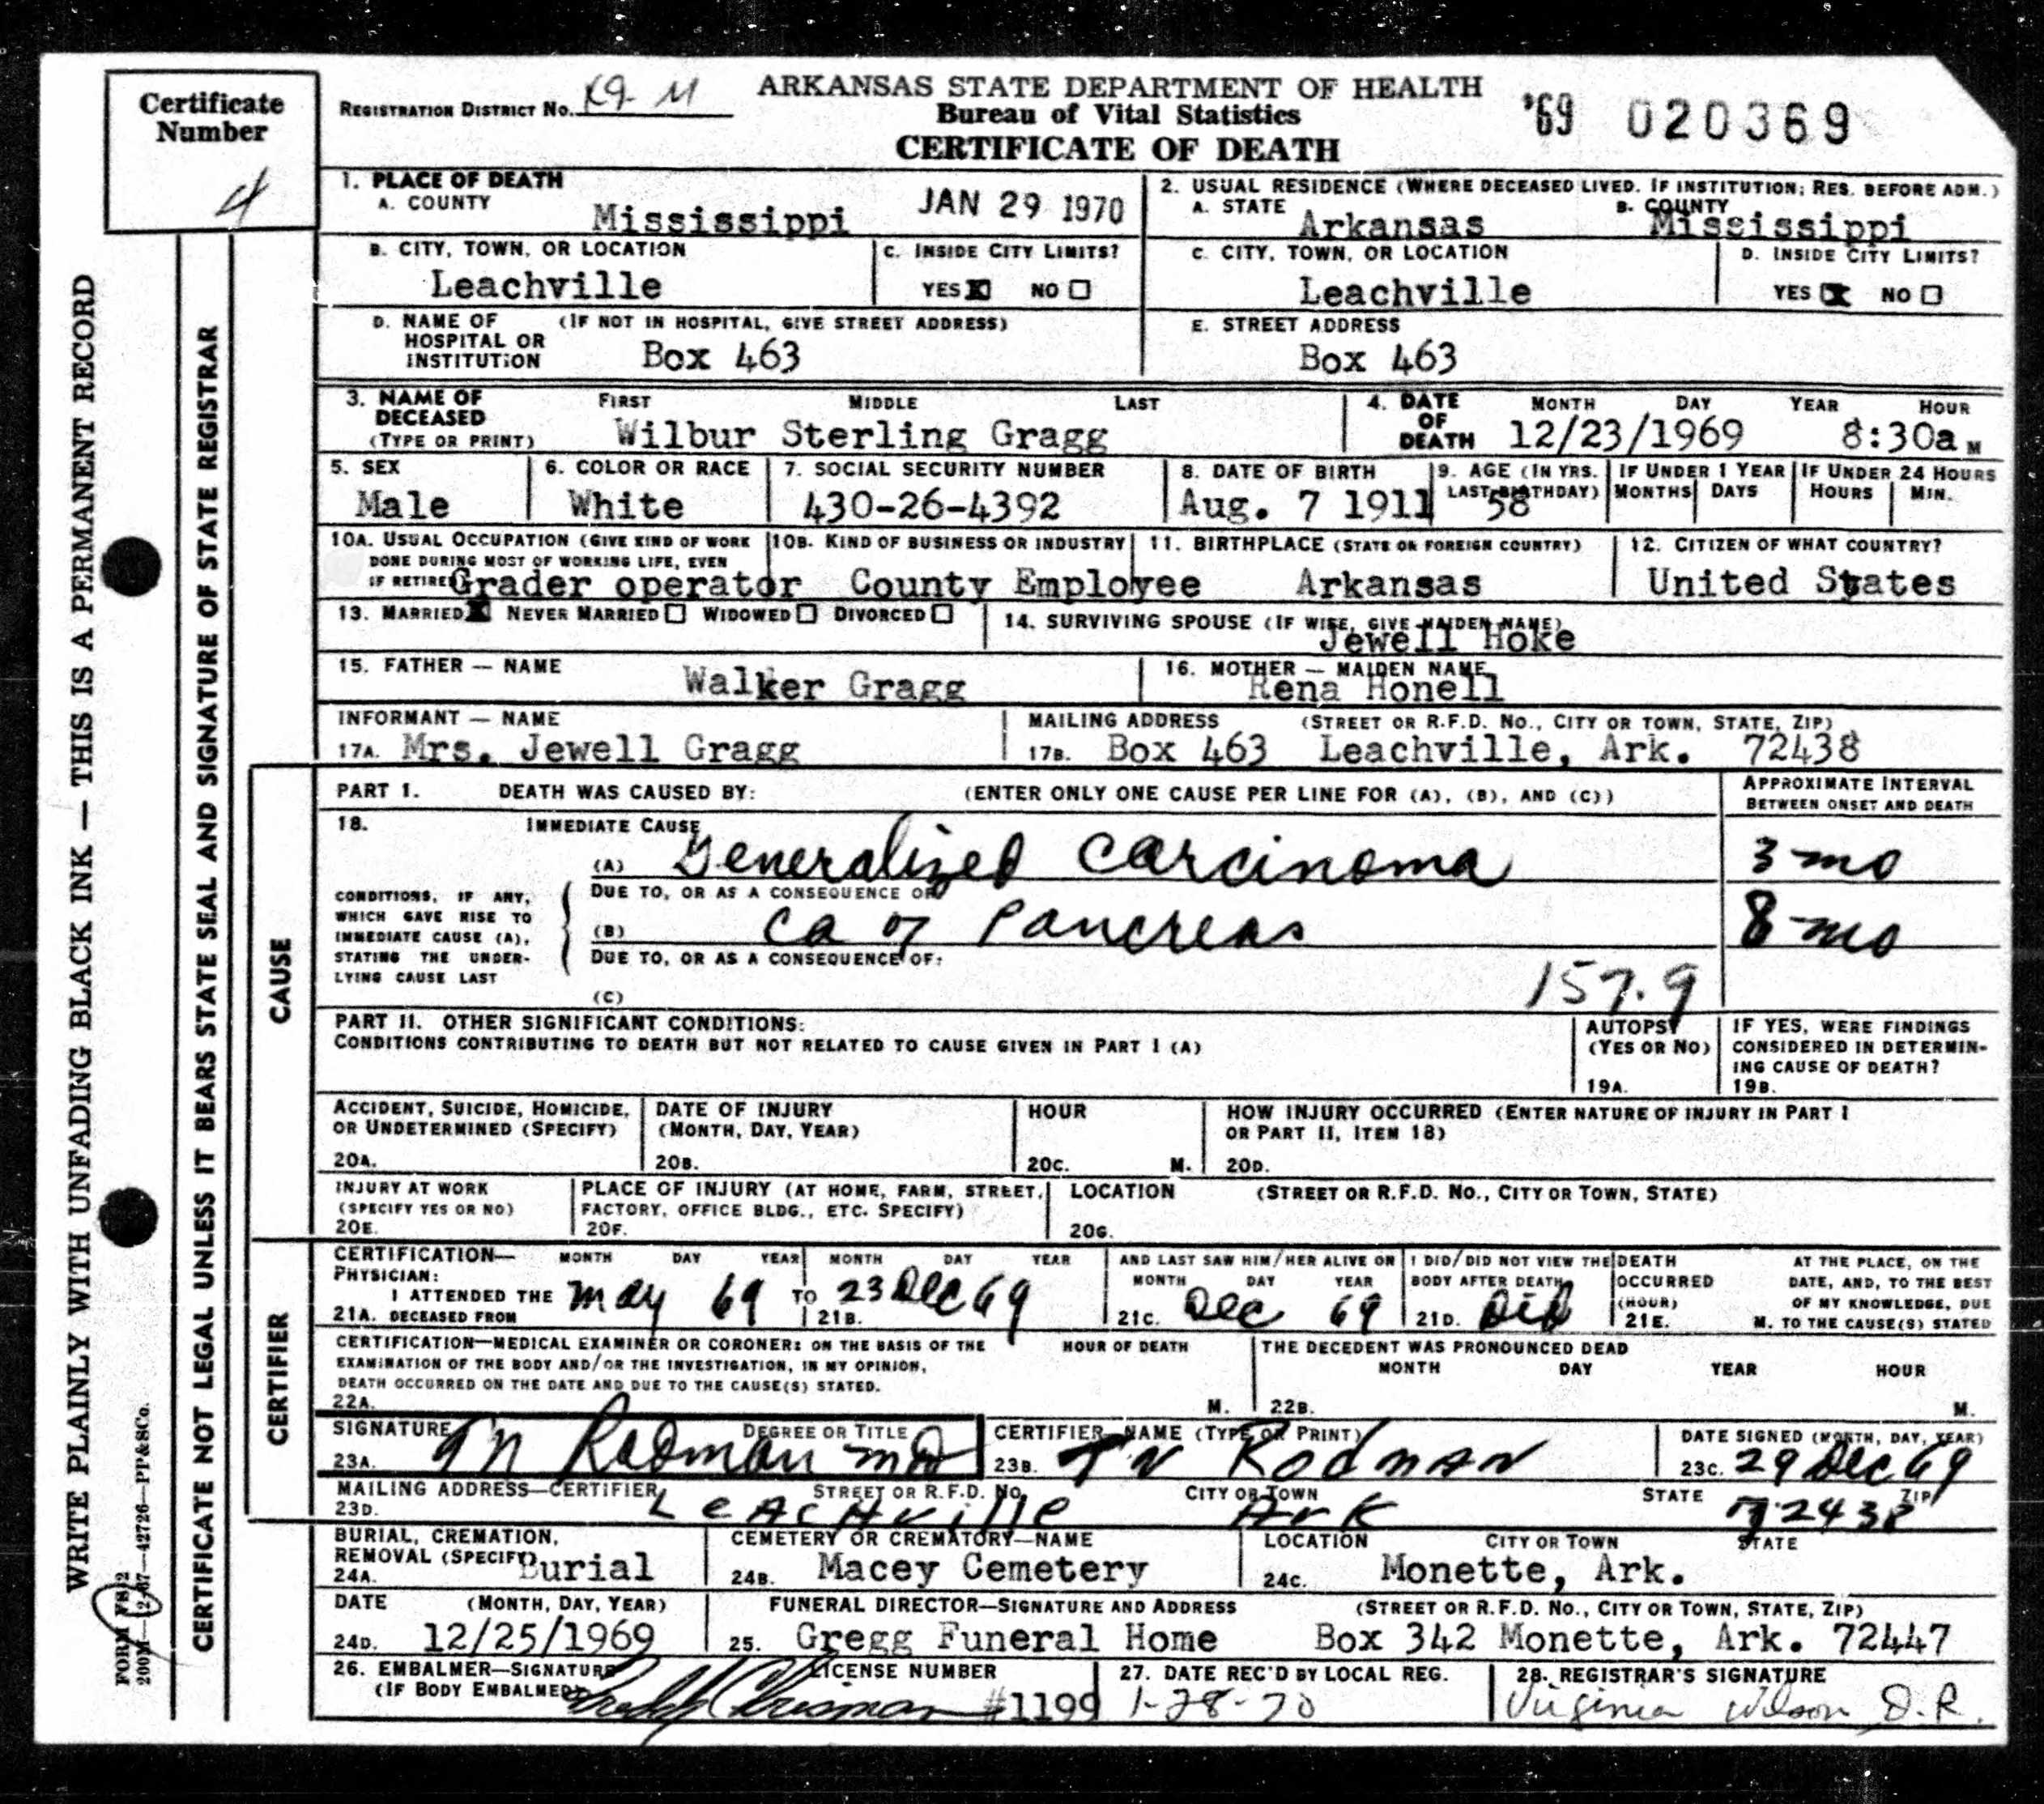 ARKANSAS STATE DEPARTMENT OF HEALTH
Bureau of Vital Statistics
CERTIFICATE OF DEATH
Certificate Number
4
REGISTRATION DISTRICT No.
'69 020369
1. PLACE OF DEATH
A. COUNTY Mississippi
JAN 29 1970
2. USUAL RESIDENCE (WHERE DECEASED LIVED. IF INSTITUTION; RES. BEFORE ADM.)
A. STATE Arkansas B. COUNTY Mississippi
B. CITY, TOWN, OR LOCATION Leachville
C. INSIDE CITY LIMITS? YES X NO
C. CITY, TOWN, OR LOCATION Leachville
D. INSIDE CITY LIMITS? YES X NO
D. NAME OF HOSPITAL OR INSTITUTION (IF NOT IN HOSPITAL, GIVE STREET ADDRESS) Box 463
E. STREET ADDRESS Box 463
3. NAME OF DECEASED (TYPE OR PRINT) FIRST MIDDLE LAST
Wilbur Sterling Gragg
4. DATE OF DEATH MONTH DAY YEAR HOUR
12/23/1969 8:30a M
5. SEX Male
6. COLOR OR RACE White
7. SOCIAL SECURITY NUMBER 430-26-4392
8. DATE OF BIRTH Aug. 7 1911
9. AGE (IN YRS. LAST BIRTHDAY) 58
IF UNDER 1 YEAR MONTHS DAYS
IF UNDER 24 HOURS HOURS MIN.
10A. USUAL OCCUPATION (GIVE KIND OF WORK DONE DURING MOST OF WORKING LIFE, EVEN IF RETIRED) Grader operator
10B. KIND OF BUSINESS OR INDUSTRY County Employee
11. BIRTHPLACE (STATE OR FOREIGN COUNTRY) Arkansas
12. CITIZEN OF WHAT COUNTRY? United States
13. MARRIED X NEVER MARRIED WIDOWED DIVORCED
14. SURVIVING SPOUSE (IF WIFE, GIVE MAIDEN NAME) Jewell Hoke
15. FATHER — NAME Walker Gragg
16. MOTHER — MAIDEN NAME Rena Honell
INFORMANT — NAME
17A. Mrs. Jewell Gragg
MAILING ADDRESS (STREET OR R.F.D. No., CITY OR TOWN, STATE, ZIP)
17B. Box 463 Leachville, Ark. 72438
PART I. DEATH WAS CAUSED BY: (ENTER ONLY ONE CAUSE PER LINE FOR (A), (B), AND (C))
APPROXIMATE INTERVAL BETWEEN ONSET AND DEATH
18. IMMEDIATE CAUSE
(A) Generalized Carcinoma 3 mo
CONDITIONS, IF ANY, WHICH GAVE RISE TO IMMEDIATE CAUSE (A), STATING THE UNDERLYING CAUSE LAST
DUE TO, OR AS A CONSEQUENCE OF:
(B) Ca of Pancreas 8 mo
DUE TO, OR AS A CONSEQUENCE OF:
(C)
157.9
PART II. OTHER SIGNIFICANT CONDITIONS:
CONDITIONS CONTRIBUTING TO DEATH BUT NOT RELATED TO CAUSE GIVEN IN PART I (A)
AUTOPSY (YES OR NO) 19A.
IF YES, WERE FINDINGS CONSIDERED IN DETERMINING CAUSE OF DEATH? 19B.
ACCIDENT, SUICIDE, HOMICIDE, OR UNDETERMINED (SPECIFY) 20A.
DATE OF INJURY (MONTH, DAY, YEAR) 20B.
HOUR 20C. M.
HOW INJURY OCCURRED (ENTER NATURE OF INJURY IN PART I OR PART II, ITEM 18) 20D.
INJURY AT WORK (SPECIFY YES OR NO) 20E.
PLACE OF INJURY (AT HOME, FARM, STREET, FACTORY, OFFICE BLDG., ETC. SPECIFY) 20F.
LOCATION (STREET OR R.F.D. No., CITY OR TOWN, STATE) 20G.
CERTIFICATION— PHYSICIAN: I ATTENDED THE DECEASED FROM
21A. MONTH DAY YEAR May 69 TO
21B. MONTH DAY YEAR 23 Dec 69
21C. AND LAST SAW HIM/HER ALIVE ON MONTH DAY YEAR Dec 69
21D. I DID/DID NOT VIEW THE BODY AFTER DEATH Did
21E. DEATH OCCURRED (HOUR) M. AT THE PLACE, ON THE DATE, AND, TO THE BEST OF MY KNOWLEDGE, DUE TO THE CAUSE(S) STATED
CERTIFICATION—MEDICAL EXAMINER OR CORONER: ON THE BASIS OF THE EXAMINATION OF THE BODY AND/OR THE INVESTIGATION, IN MY OPINION, DEATH OCCURRED ON THE DATE AND DUE TO THE CAUSE(S) STATED.
22A. HOUR OF DEATH M.
22B. THE DECEDENT WAS PRONOUNCED DEAD MONTH DAY YEAR HOUR M.
SIGNATURE DEGREE OR TITLE
23A. TN Rodman MD
CERTIFIER—NAME (TYPE OR PRINT)
23B. TN Rodman
DATE SIGNED (MONTH, DAY, YEAR)
23C. 29 Dec 69
MAILING ADDRESS—CERTIFIER STREET OR R.F.D. No. CITY OR TOWN STATE ZIP
23D. Leachville Ark 72438
BURIAL, CREMATION, REMOVAL (SPECIFY)
24A. Burial
CEMETERY OR CREMATORY—NAME
24B. Macey Cemetery
LOCATION CITY OR TOWN STATE
24C. Monette, Ark.
DATE (MONTH, DAY, YEAR)
24D. 12/25/1969
FUNERAL DIRECTOR—SIGNATURE AND ADDRESS (STREET OR R.F.D. No., CITY OR TOWN, STATE, ZIP)
25. Gregg Funeral Home Box 342 Monette, Ark. 72447
26. EMBALMER—SIGNATURE (IF BODY EMBALMED) LICENSE NUMBER
Chrisman #1199
27. DATE REC'D BY LOCAL REG.
1-28-70
28. REGISTRAR'S SIGNATURE
Virginia Wilson D.R.
CAUSE
CERTIFIER
WRITE PLAINLY WITH UNFADING BLACK INK — THIS IS A PERMANENT RECORD
CERTIFICATE NOT LEGAL UNLESS IT BEARS STATE SEAL AND SIGNATURE OF STATE REGISTRAR
200M—12-67—42726—PP&SCo.